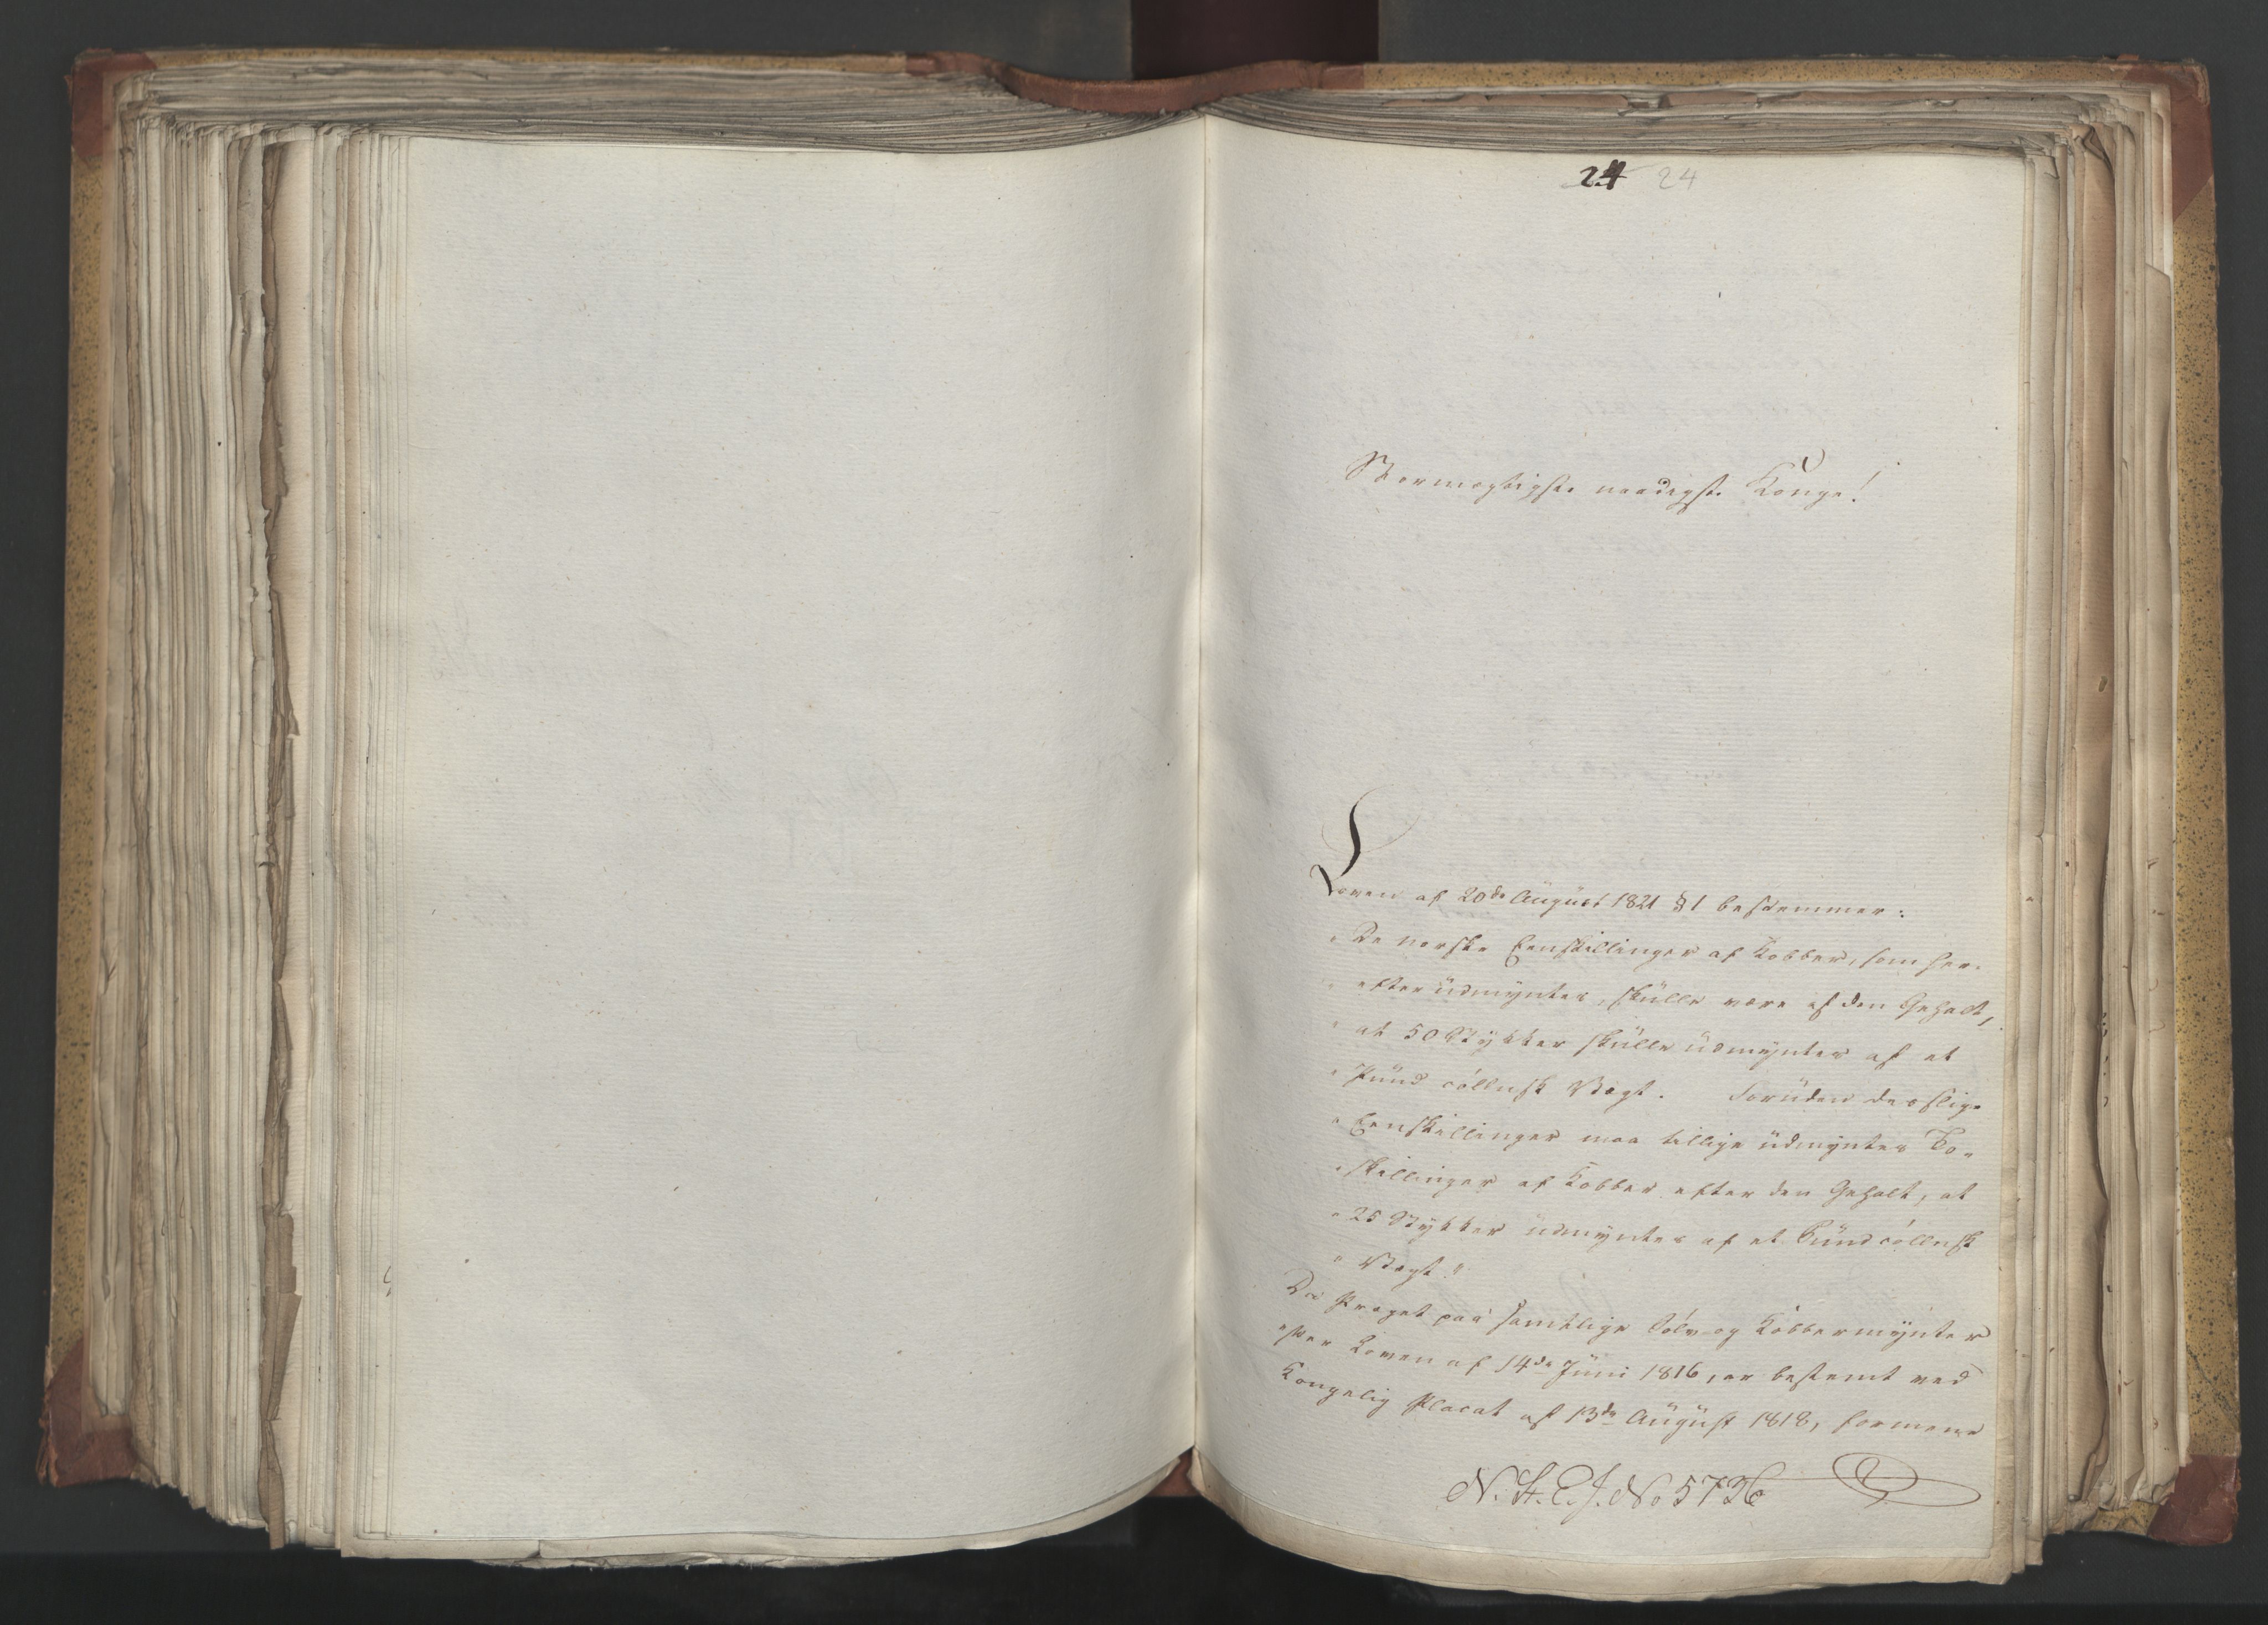 24 24
Stormægtigste naadigste Konge!
Loven af 20de August 1821 § 1 bestemmer:
"De norske Eenskillinger af Kobber, som her-
"efter udmyntes, skulle være af den Gehalt,
"at 50 Stykker skulle udmyntes af et
"Pund cöllnsk Vægt. Foruden deslige
"Eenskillinger maa tillige udmyntes To-
"skillinger af Kobber efter den Gehalt, at
"25 Stykker udmyntes af et Pund cöllnsk
"Vægt."
Da Præget paa samtlige Sölv- og Kobbermynter
efter Loven af 14de Juni 1816, er bestemt ved
Kongelig Placat af 13de August 1818, formener
N. St. E. J. No 5736